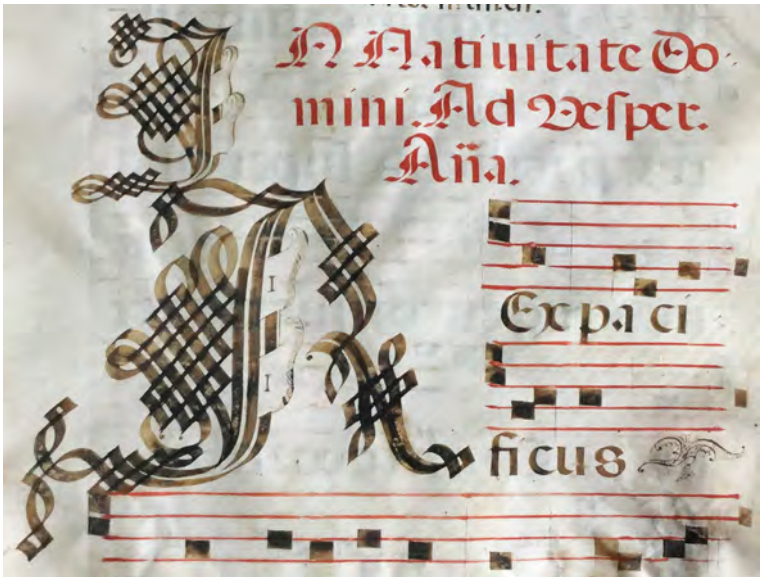 IN Natiuitate Do
mini. Ad Vesper.
Aña.
REx paci
ficus